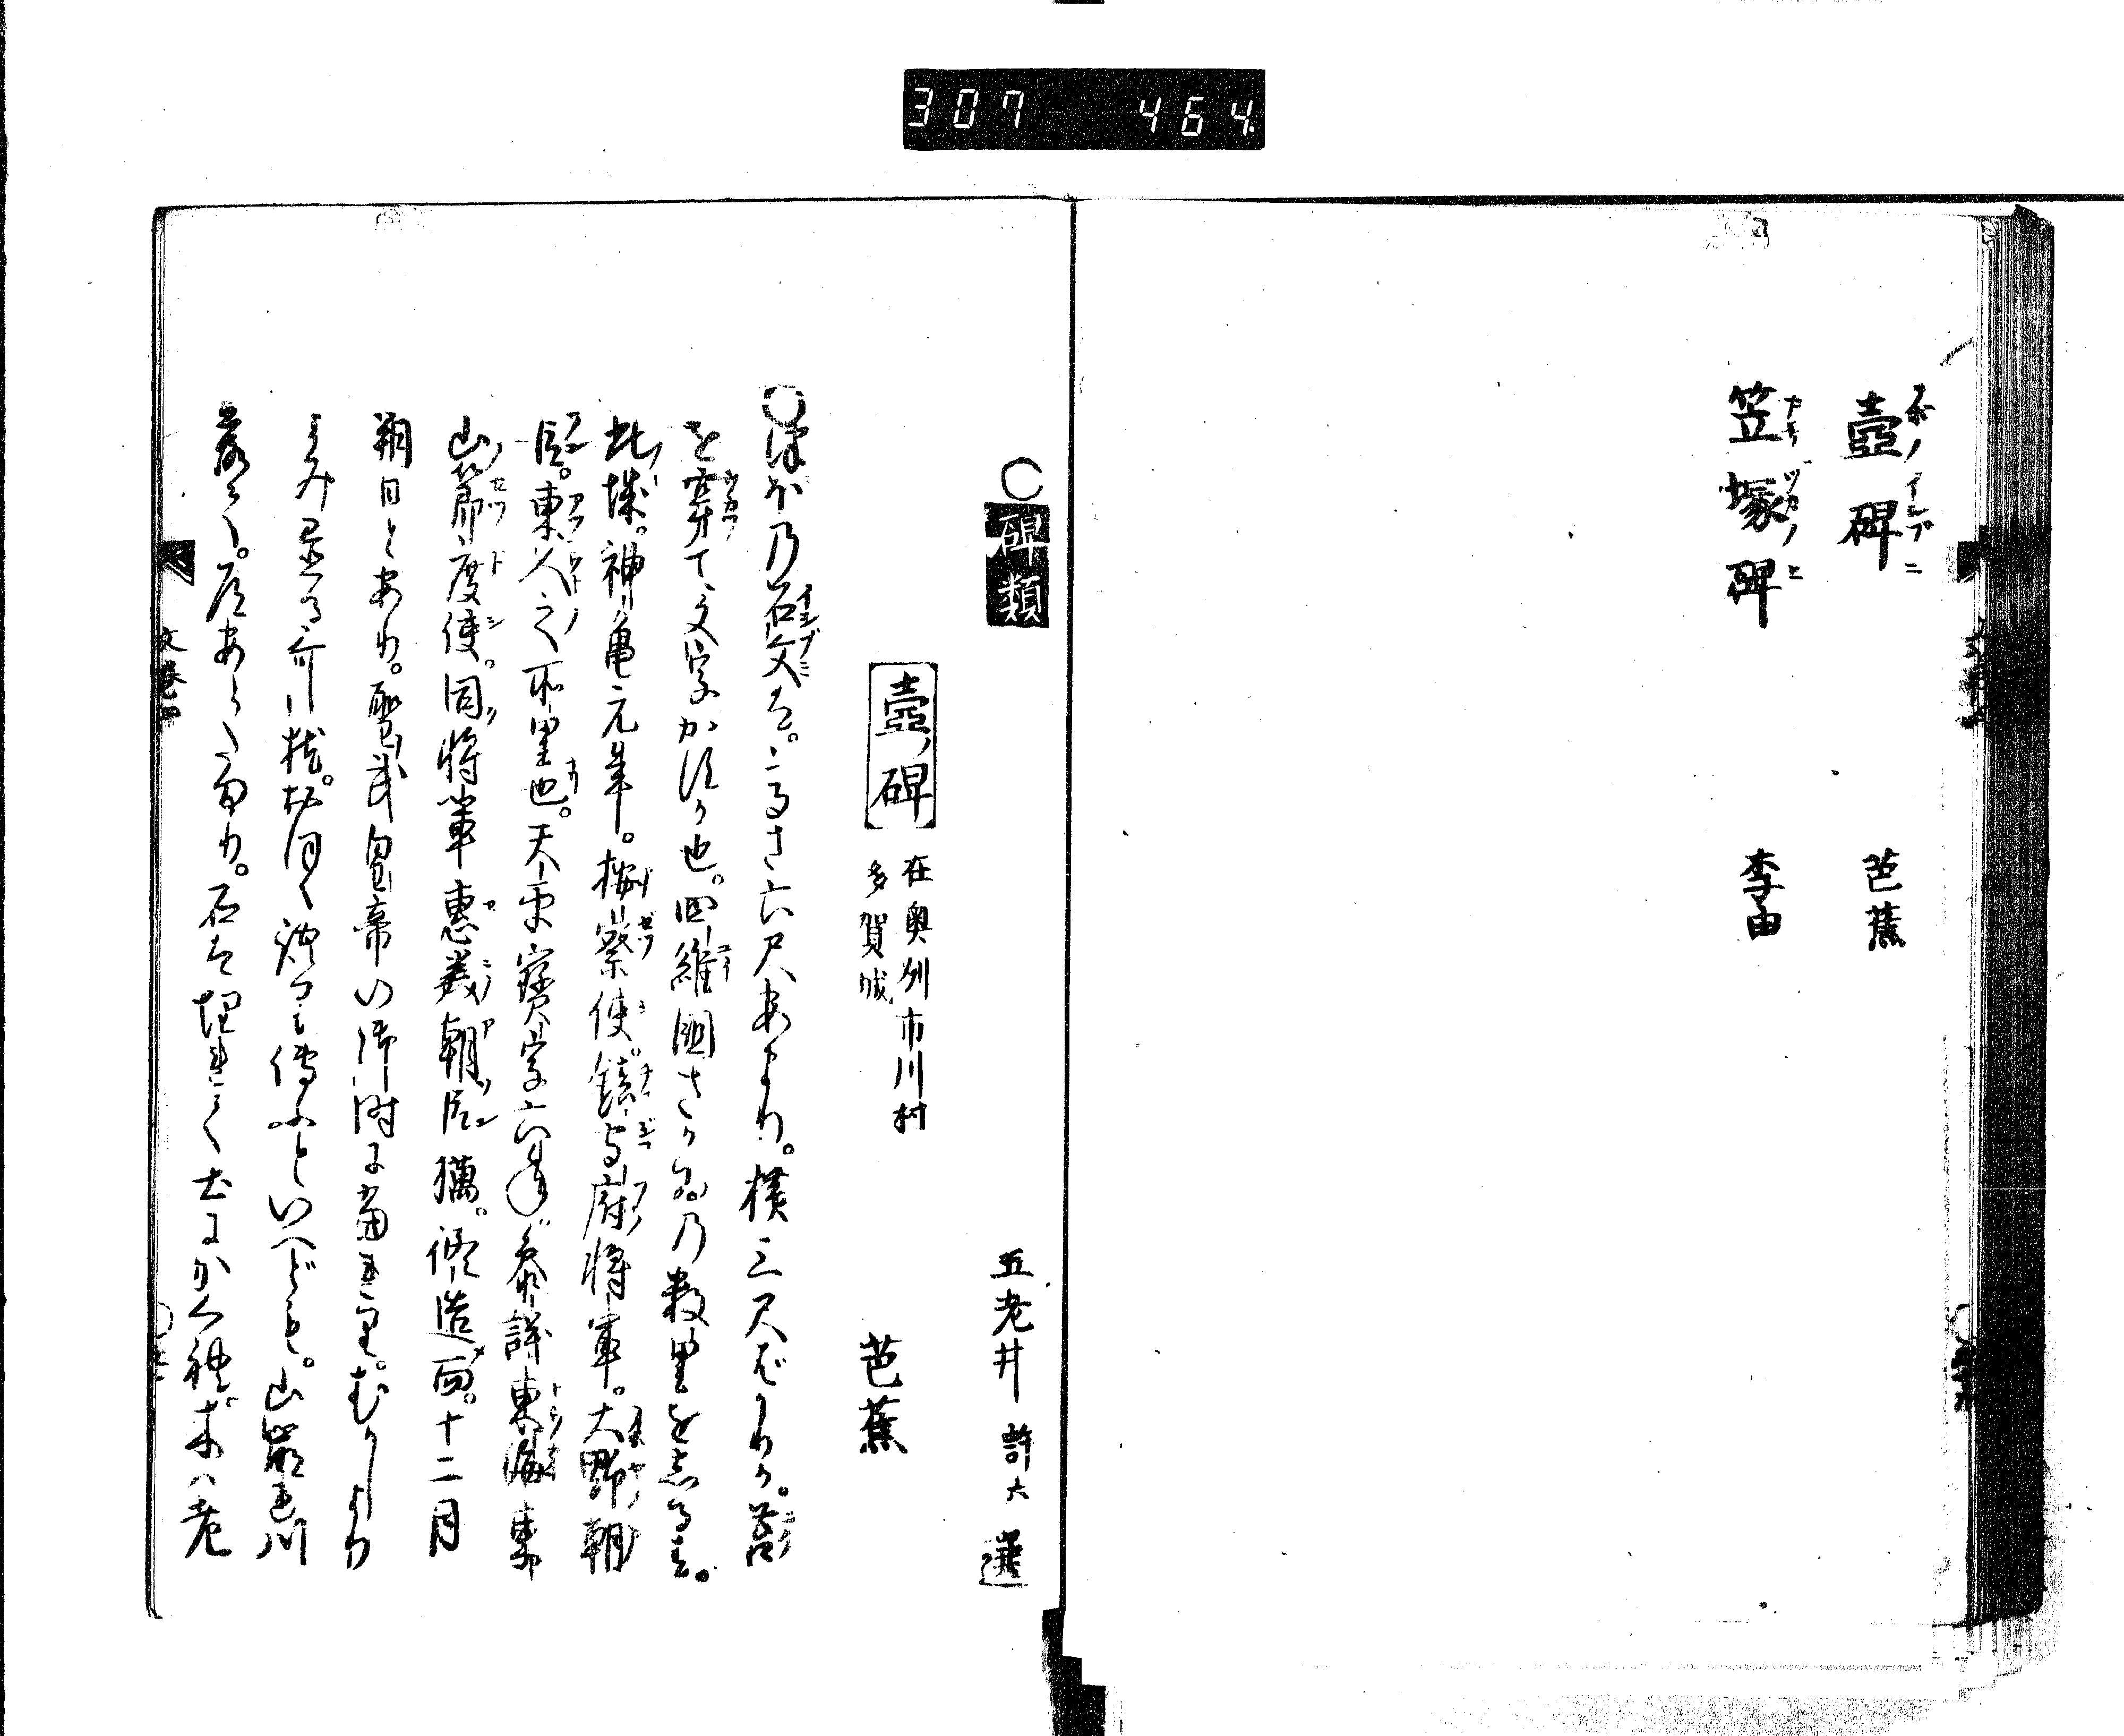 307 464
壺碑 芭蕉
笠塚碑 李由
○碑類 五老井 許六 選
壺碑 在奥州市川村
多賀城
芭蕉
○つほ乃石文は。高さ六尺あまり。横三尺ばかりか。苔
を穿て文字かすか也。四維國さかゐ乃数里を志るす。
此城。神亀元年。按察使。鎮守府将軍。大野朝
臣。東人之所里也。天平寶字六年。参議東海東
山節度使。同将軍恵美朝臣獦。修造而。十二月
朔日とあり。聖武皇帝の御時に當れり。むかしより
よみ置る哥枕。おほく語り傳ふといへども。山崩れ川
落て。道あらたまり。石は埋れて土にかくれ。木ハ老